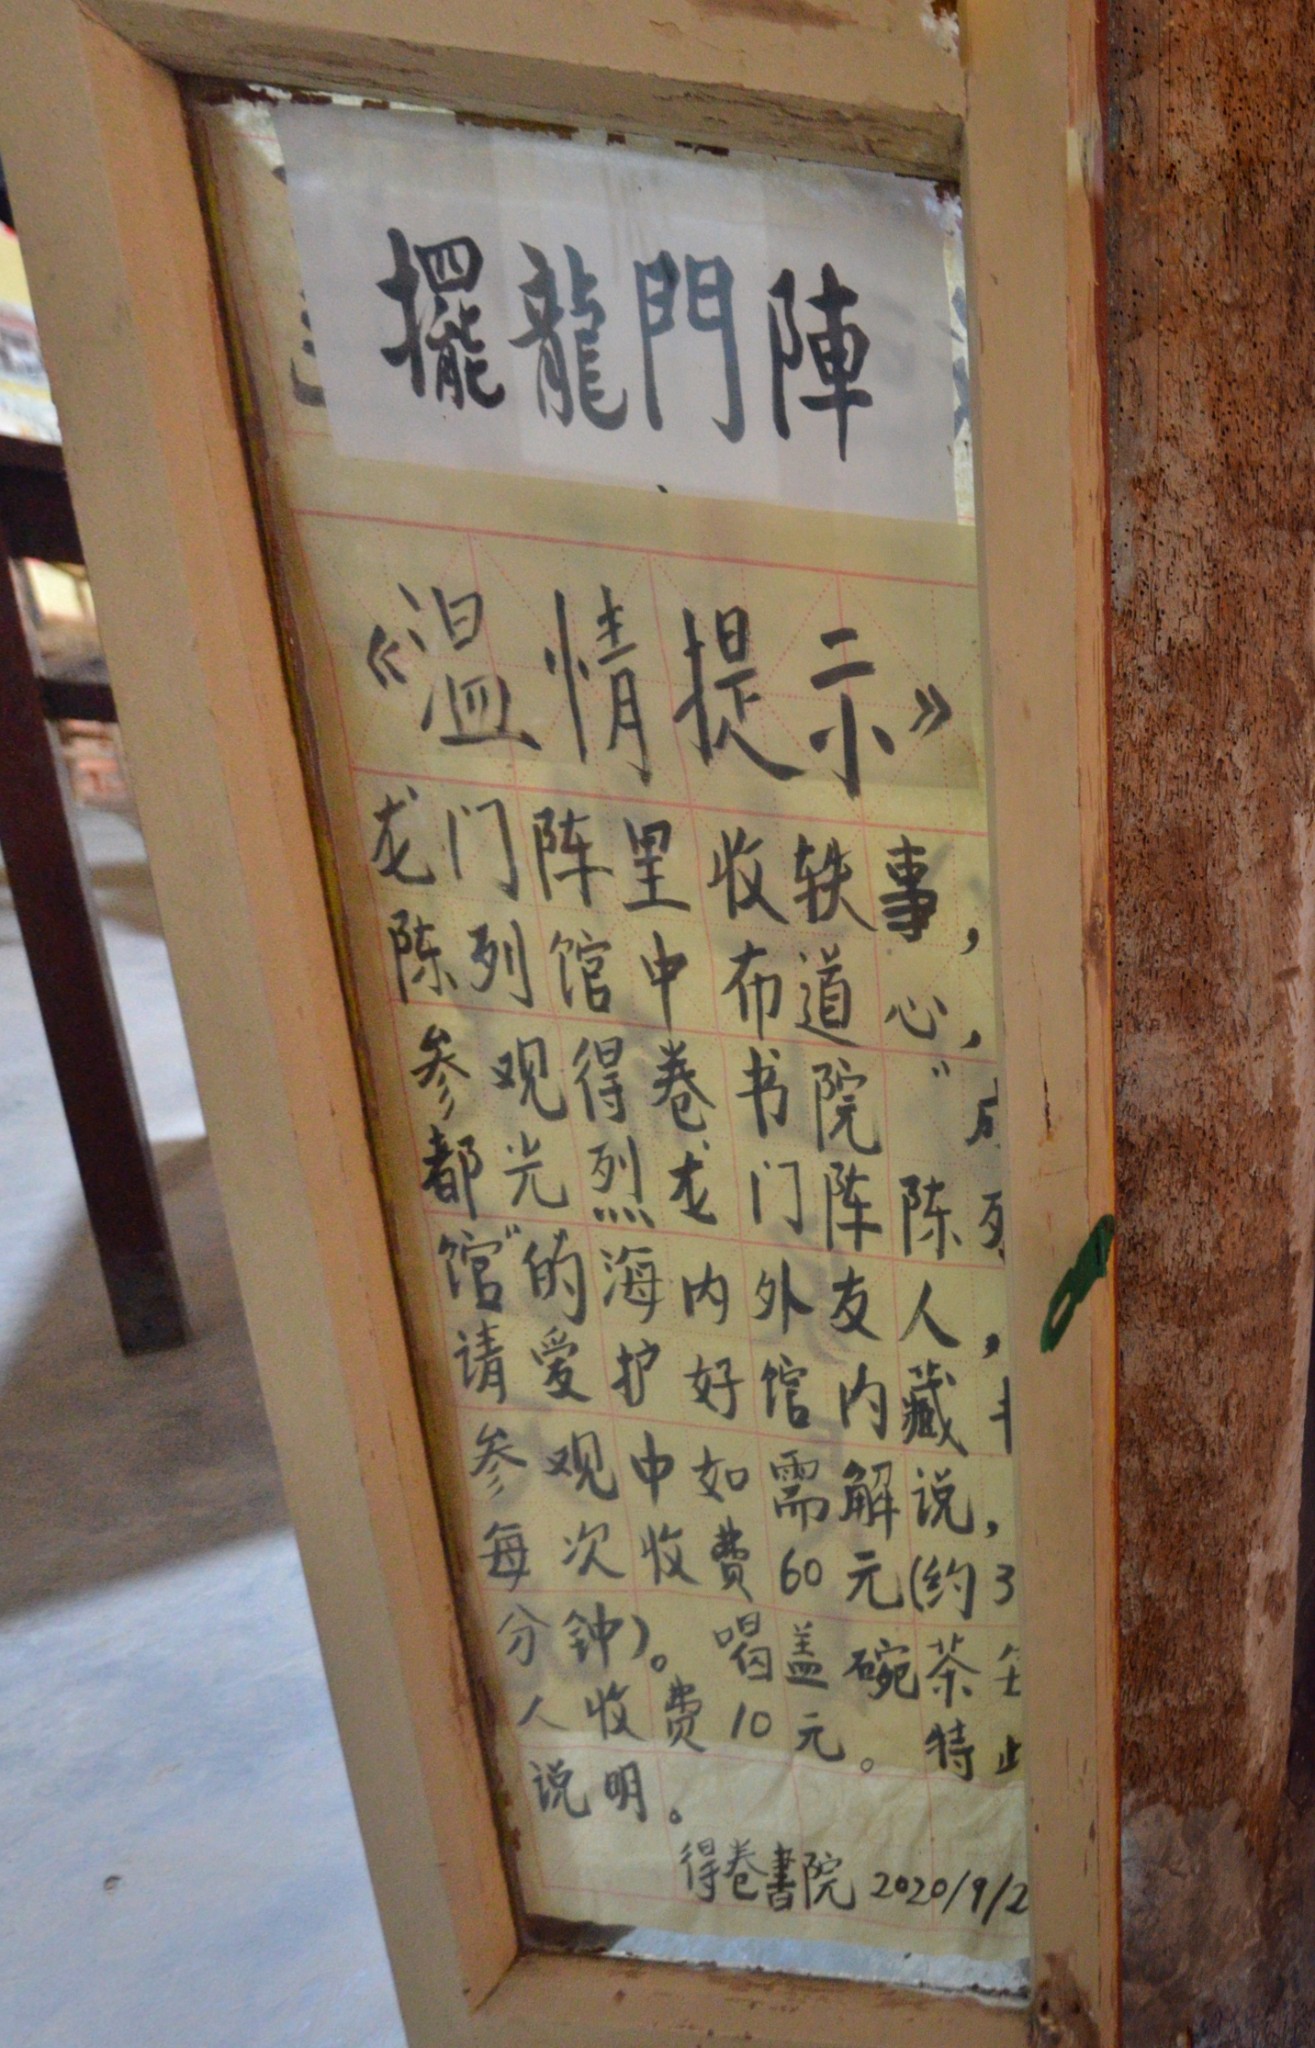 擺龍門陣
《温情提示》
龙门阵里收轶事，
陈列馆中布道心，
参观得卷书院"
都光烈龙门阵陈
馆"的海内外友人，
请爱护好馆内藏
参观中如需解说，
每次收费60元(约3
分钟)。喝盖碗茶
人收费10元。特
说明。
得卷書院 2020/9/2